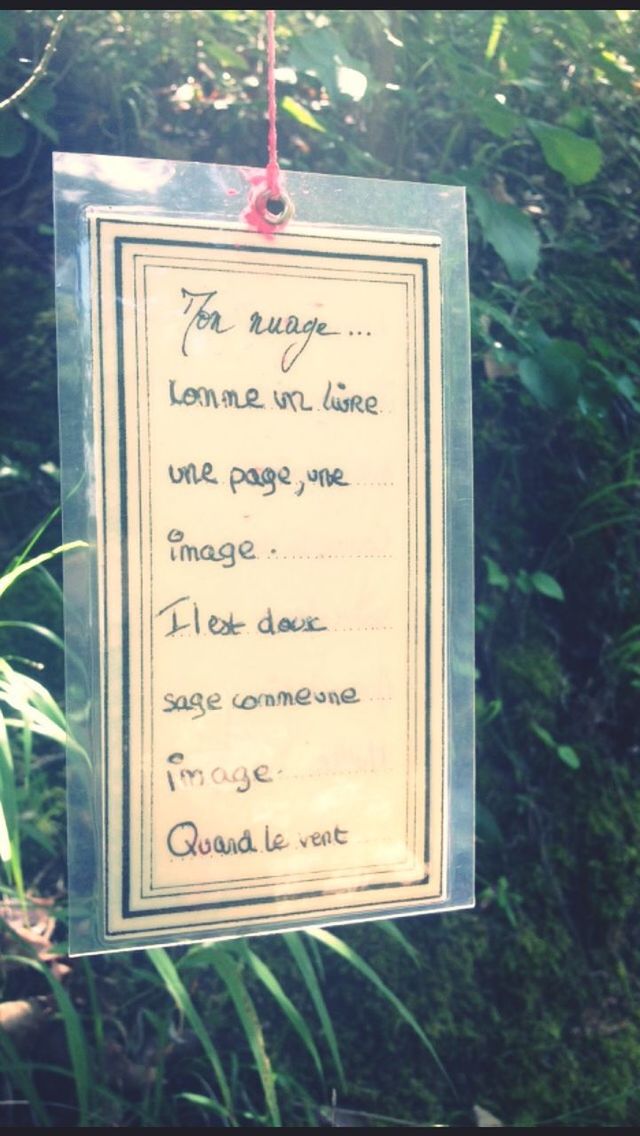 Mon nuage...
Comme un livre
une page, une
image.
Il est doux
sage comme une
image.
Quand le vent